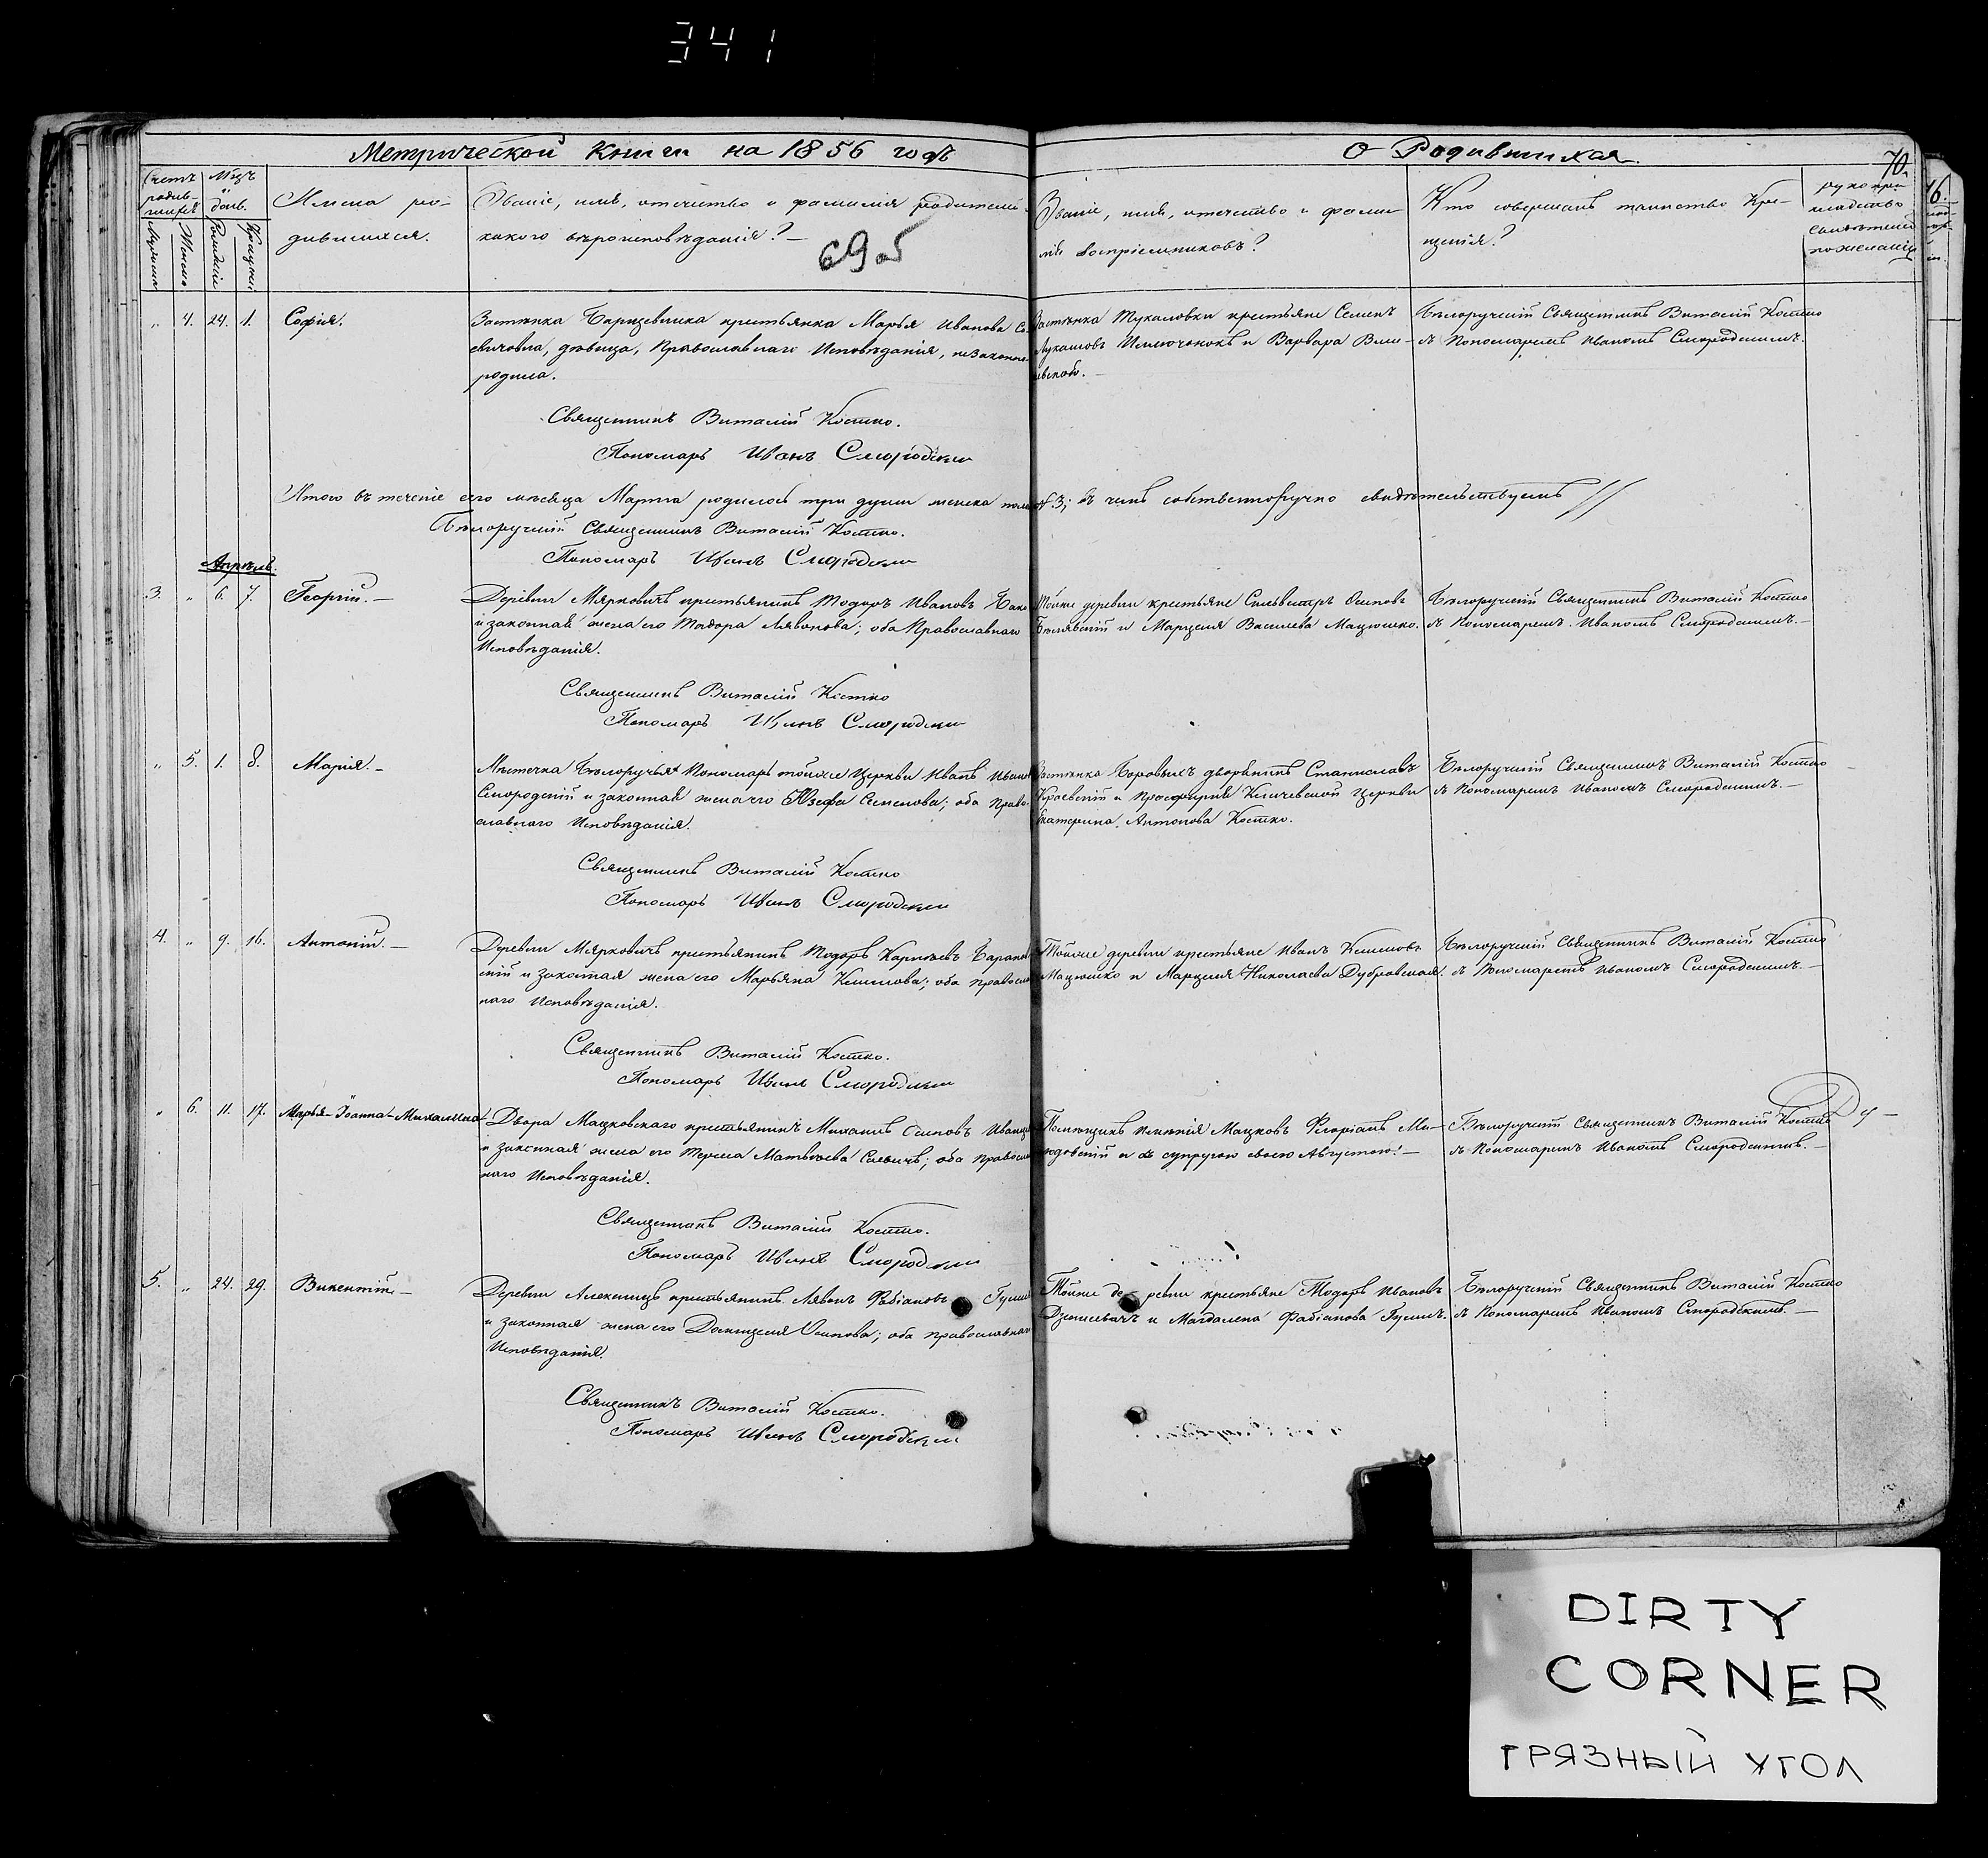 341
Метрической Книги на 1856 годъ
О Родившихся.
70.
Счетъ родив-шихся
Мѣсяцъ и день.
Мужеска
Женска
Рожденія
Крещенія
Имена ро-
дившихся.
Званіе, имя, отчество и фамилія родителей
какого вѣроисповѣданія? —
69 об
Званіе, имя, отчество и фами-
лія воспріемниковъ?
Кто совершалъ таинство Кре-
щенія?
рукопри
кладство
свидѣтелей
по желанію
„ 4. 24. 1. Софія.
Застѣнка Барщевника крестьянка Марья Иванова
дѣвица, Православнаго Исповѣданія, незаконно
родила.
Застѣнка Тукаловки крестьяне Семенъ
Лукашовъ и Варвара
Бѣлоручскій Священникъ Виталій Костко
съ Пономаремъ Иваномъ Смородскимъ.
Священникъ Виталій Костко.
Пономарь Иванъ Смородскій
Итого въ теченіе сего мѣсяца Марта родилось три души женска пола № 3; въ чемъ собственноручно свидѣтельствуемъ //
Бѣлоручскій Священникъ Виталій Костко.
Пономарь Иванъ Смородскій
Апрѣль.
3. „ 6. 7. Георгій. —
Деревни Мярковичъ крестьянинъ Тодоръ Ивановъ
и законная жена его Тодора Лявонова; оба Православнаго
Исповѣданія.
Тойже деревни крестьяне Сильвестръ Осиповъ
Бѣлявскій и Марцеля Василева Мацюшко.
Бѣлоручскій Священникъ Виталій Костко
съ Пономаремъ Иваномъ Смородскимъ. —
Священникъ Виталій Костко
Пономарь Иванъ Смородскій
„ 5. 1. 8. Марія. —
Мѣстечка Бѣлоручья Пономарь тойже Церкви Иванъ
Смородскій и законная жена его Юзефа Семенова; оба Право-
славнаго Исповѣданія.
Застѣнка Боровыхъ дворянинъ Станиславъ
Краевскій и Просфирня Церкви
Екатерина Антонова Костко.
Бѣлоручскій Священникъ Виталій Костко
съ Пономаремъ Иваномъ Смородскимъ. —
Священникъ Виталій Костко
Пономарь Иванъ Смородскій
4. „ 9. 16. Антоній. —
Деревни Мярковичъ крестьянинъ Тодоръ Карнѣевъ Баранов
скій и законная жена его Марьяна оба Правосла
наго Исповѣданія.
Тойже деревни крестьяне Иванъ
Мацюшко и Марцеля Николаева Дубровская.
Бѣлоручскій Священникъ Виталій Костко
съ Пономаремъ Иваномъ Смородскимъ. —
Священникъ Виталій Костко.
Пономарь Иванъ Смородскій
„ 6. 11. 17. Марья-Іоанна-Михалина
Двора Мацковскаго крестьянинъ Михаилъ Осиповъ
и законная жена его Тереса Матвѣева оба Правосла
наго Исповѣданія.
Помѣщикъ имѣнія Мацковъ Флоріанъ
и съ супругою своею Августою. —
Бѣлоручскій Священникъ Виталій Костко
съ Пономаремъ Иваномъ Смородскимъ. —
Священникъ Виталій Костко.
Пономарь Иванъ Смородскій
5. „ 24. 29. Викентій —
Деревни крестьянинъ Лявонъ Фабіановъ
и законная жена его Доминцеля Осипова; оба православнаго
Исповѣданія.
Тойже деревни крестьяне Тодоръ Ивановъ
Дземисевичъ и Магдалена Фабіанова
Бѣлоручскій Священникъ Виталій Костко
съ Пономаремъ Иваномъ Смородскимъ. —
Священникъ Виталій Костко.
Пономарь Иванъ Смородскій
DIRTY
CORNER
ГРЯЗНЫЙ УГОЛ